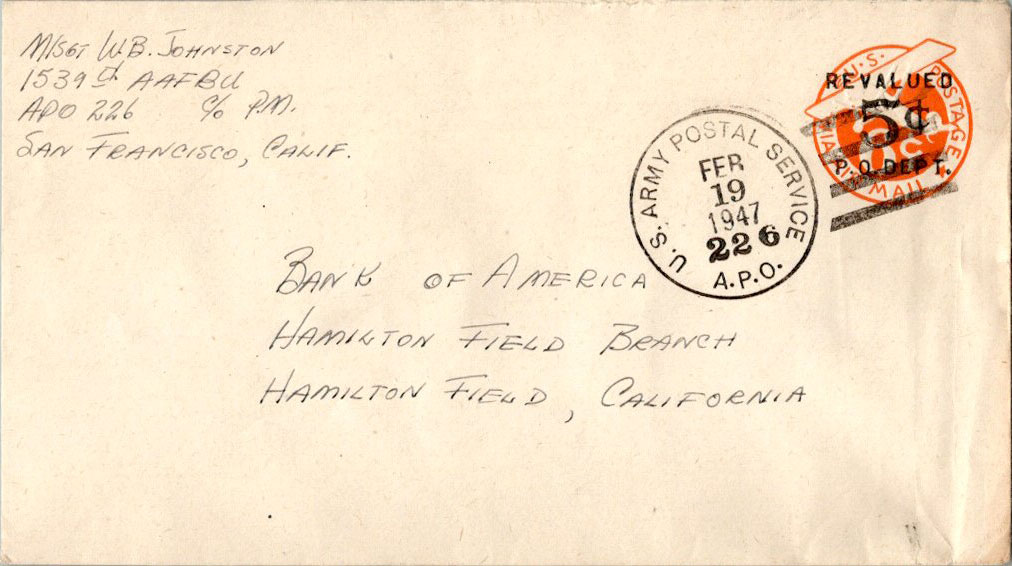 M/SGT W.B. JOHNSTON
1539th AAFBU
APO 226 c/o P.M.
SAN FRANCISCO, CALIF.
U.S. POSTAGE
REVALUED
5¢
6c
P.O. DEPT.
VIA AIR MAIL
U.S. ARMY POSTAL SERVICE
FEB
19
1947
226
A.P.O.
BANK OF AMERICA
HAMILTON FIELD BRANCH
HAMILTON FIELD, CALIFORNIA